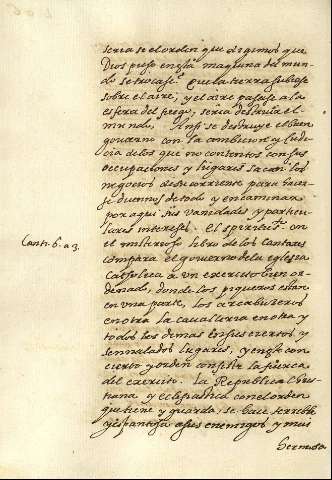 seria se el orden que degimos que
Dios puso en esta maquina del mun-
do se trocase. Que la tierra subiese
sobre el aire, y el aire pasase a la
esfera del fuego, seria destruir el
mundo. Ansi se destruye el buen
govierno con la ambicion y
de los que no contentos con sus
ocupaciones y lugares sacan los
negocios de su corriente para
se duenos de todo y encaminan
por aqui sus vanidades y particu-
lares intereses. el spiritu sto. en
el misterioso libro de los cantares
Cant. 6. a 3.
compara el govierno de la eglesia
Catholica a un exercito bien or-
denado, donde los piqueros estan
en una parte, los arcabuzeros
en otra la cavalleria en otra y
todos los demas en sus ciertos y
sennalados lugares, y en este con-
cierto y orden consiste la fuerca
del exercito. la Republica Chris-
tiana y eclesiastica con el orden
que tiene y guarda, se hace terrible
y espantosa a sus enemigos y mui
hermosa